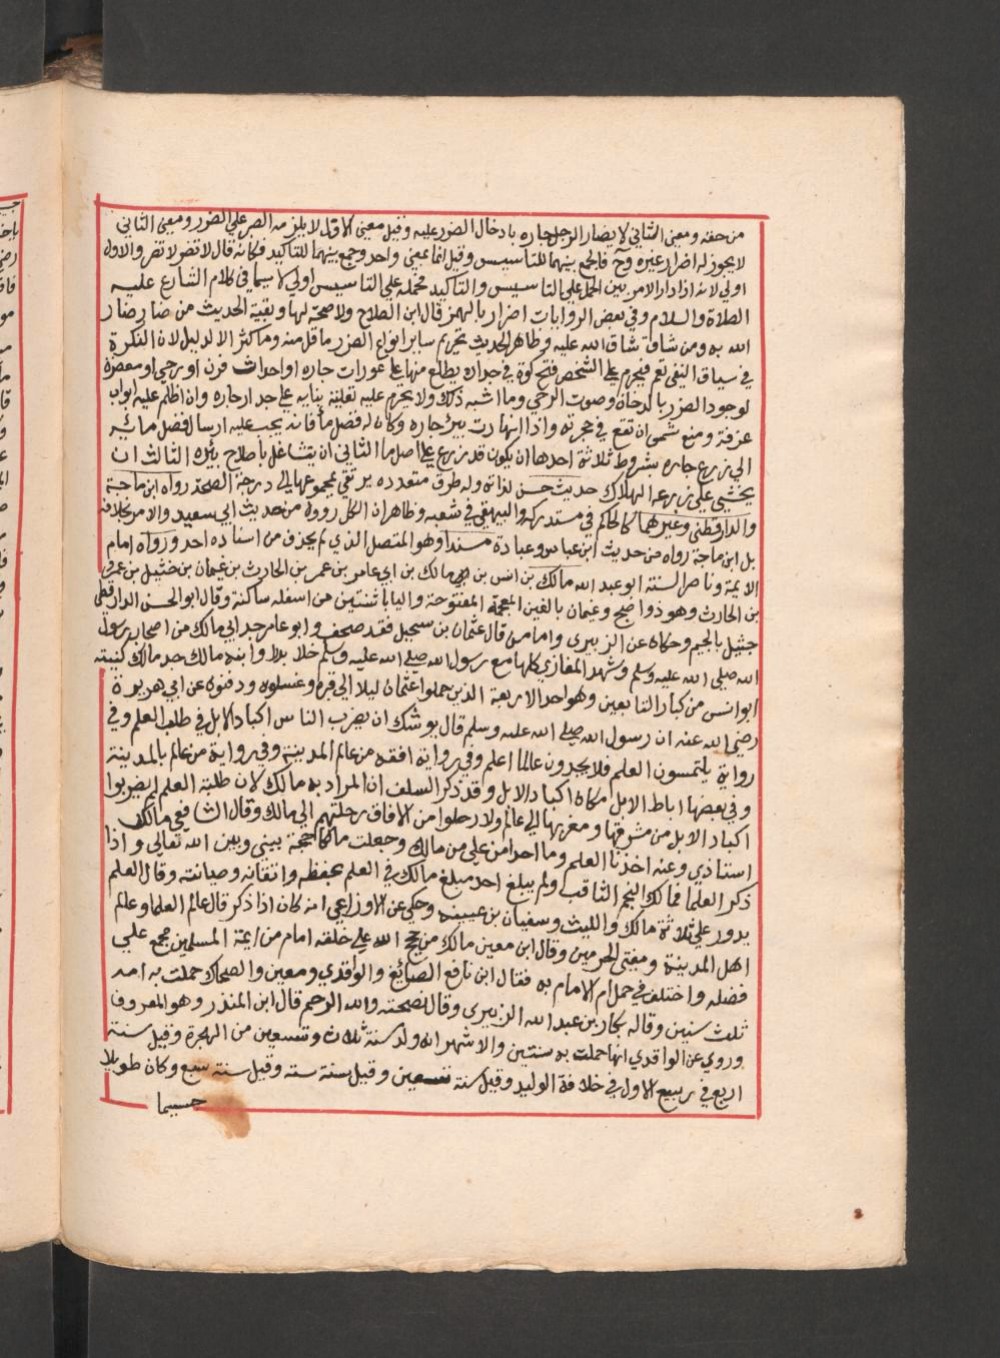 من حقه ومعنى الثاني لا يضار الرجل جاره بادخال الضرر عليه وقيل معنى الاول لا يلزمه الصبر علي الضرر ومعنى الثاني
لا يجوز له اضرار غيره وح فالجمع بينهما للتاسيس وقيل انما بمعني واحد وجمع بينهما للتاكيد فكانه قال لا تضر لا تضر والاول
اولي لانه اذا دار الامر بين الحمل علي التاسيس والتاكيد فحمله علي التاسيس اولي لا سيما في كلام الشارع عليه
الصلاة والسلام وفي بعض الروايات اضرار بالهمز قال ابن الصلاح ولا صحة لها وبقية الحديث من ضار ضار
الله به ومن شاق شاق الله عليه وظاهر الحديث تحريم ساير انواع الضرر ما قل منه وما كثر الا لدليل لان النكرة
في سياق النفي نعم فيحرم علي الشخص فتح كوة في جداره يطلع منها علي عورات جاره او احداث فرن او رحي او معصرة
لوجود الضرر بالدخان وصوت الرحي وما اشبه ذلك ولا يحرم عليه تعلية بنايه علي جدار جاره وان اظلم عليه ابواب
غرفة ومنع شمس ان تقع في حجرته واذا انهارت بير جاره وكان له فضل ما فانه يجب عليه ارسال فضل مائه
الي زرع جاره بشروط ثلاثة احدها ان يكون قد زرع علي اصل ما الثاني ان يتشاغل باصلاح بيره الثالث ان
يخشي علي زرعه الهلاك حديث حسن لذاته وله طرق متعدده يرتقي بمجموعها الي درجة الصحة رواه ابن ماجة
والدارقطني وغيرهما كالحاكم في مستدركه والبيهقي في شعبه وظاهر ان الكل رووه من حديث ابي سعيد والامر بخلافه
بل ابن ماجة رواه من حديث ابن عباس وعبادة مسندا وهو المتصل الذي لم يحذف من اسناده احد ورواه امام
الايمة وناصر السنة ابو عبد الله مالك بن انس بن مالك بن ابي عامر بن عمر بن الحارث بن غيمان بن خثيل بن عمرو
بن الحارث وهو ذو اصبح وغيمان بالغين المعجمة المفتوحة والياباثنتين من اسفله ساكنة وقال ابو الحسن الدارقطني
جثيل بالجيم وحكاه عن الزبيري واما من قال عثمان بن سجيل فقد صحف وابو عامر جد ابي مالك من اصحاب رسول
الله صلي الله عليه وسلم وشهد المغازي كلها مع رسول الله صلي الله عليه وسلم خلا بدرا وابنه مالك جد مالك كنيته
ابو انس من كبار التابعين وهو احد الاربعة الذين حملوا عثمان ليلا الي قبره وغسلوه ودفنوه عن ابي هريرة
رضي الله عنه ان رسول الله صلي الله عليه وسلم قال يوشك ان يضرب الناس اكباد الابل في طلب العلم وفي
رواية يلتمسون العلم فلا يجدون عالما اعلم وفي رواية افقه من عالم المدينة وفي رواية من عالم بالمدينة
وفي بعضها اباط الابل مكان اكباد الابل وقد ذكر السلف ان المراد به مالك لان طلبة العلم لم يضربوا
اكباد الابل من مشرقها ومغربها الي عالم ولا رحلوا من الافاق رحلتهم الي مالك وقال الشافعي مالك
استاذي وعنه اخذنا العلم وما احد امن علي من مالك وجعلت مالكا حجة بيني وبين الله تعالي واذا
ذكر العلما فمالك النجم الثاقب ولم يبلغ احد مبلغ مالك في العلم بحفظه واتقانه وصيانته وقال العلم
يدور علي ثلاثة مالك والليث وسفيان بن عيينه وحكي عن الاوزاعي انه كان اذا ذكر قال عالم العلما وعالم
اهل المدينة ومفتي الحرمين وقال ابن معين مالك من حجج الله علي خلقه امام من ايمة المسلمين مجمع علي
فضله واختلف في حمل ام الامام به فقال ابن نافع الصايغ والواقدي ومعين والضحاك حملت به امه
ثلث سنين وقاله بكار بن عبد الله الزبيري وقال نضجته والله الرحم قال ابن المنذر وهو المعروف
وروي عن الواقدي انها حملت به سنتين والاشهر انه ولد سنة ثلاث وتسعين من الهجرة وقيل سنة
اربع في ربيع الاول في خلافة الوليد وقيل سنة تسعين وقيل سنة ستة وقيل سنة سبع وكان طويلا
جسيما